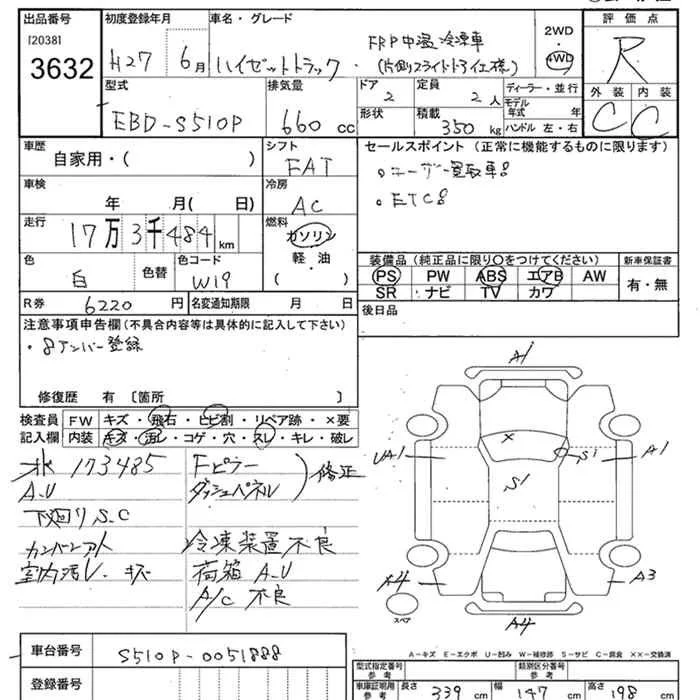 出品番号 初度登録年月 車名・グレード 評価点
[2038]
3632
H27 6月 ハイゼットトラック・ FRP中温冷凍車
(片側スライドドア仕様)
2WD
4WD
R
外装 内装
C C
型式 排気量 ドア 定員 ディーラー・並行
EBD-S510P 660 cc 2 2人 モデル年式 年
形状 積載 350kg ハンドル 左・右
車歴 シフト セールスポイント (正常に機能するものに限ります)
自家用・( ) FAT
。ユーザー買取車。
。ETC。
車検 冷房
年 月( 日) AC
走行 燃料
17万3千484km ガソリン
軽・油
( )
色 色替 色コード
白 W19
装備品 (純正品に限り○をつけてください) 新車保証書
PS PW ABS エアB AW 有・無
SR ナビ TV カワ
R券 6220円 名変通知期限 月 日
後日品
注意事項申告欄(不具合内容等は具体的に記入して下さい)
・8ナンバー登録
修復歴 有 〔箇所 〕
検査員 FW キズ・飛石・ヒビ割・リペア跡・×要
記入欄 内装 キズ・汚レ・コゲ・穴・スレ・キレ・破レ
173485
A.U
下廻りS.C
カンバンアト
室内汚レ・キズ
Fピラー
ダッシュパネル
修正
冷凍装置不良
荷箱A.U
A/C 不良
A1
UA1
S1
A1
S1
A4
A3
A4
スペア
A-キズ E-エクボ U-凹み W-補修跡 S-サビ C-腐食 ××-交換済
車台番号 S510P-0051888
登録番号
型式指定番号 参考 類別区分番号 参考
車庫証明用 参考 長さ 339cm 幅 147cm 高さ 198cm